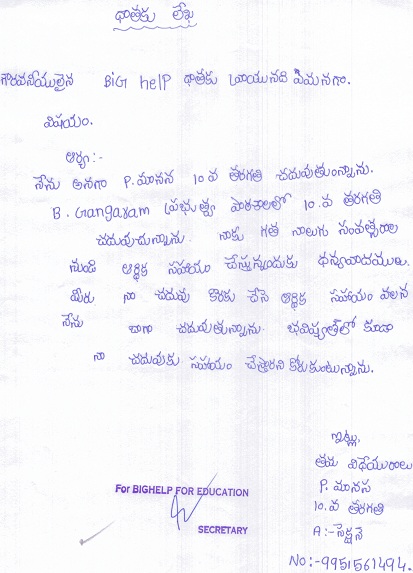 దాతకు లేఖ
గౌరవనీయులైన BiG help దాతకు వ్రాయునది ఏమనగా.
విషయం.
ఆర్య:-
నేను అనగా P. మానస 10.వ తరగతి చదువుతున్నాను.
B. Gangaram ప్రభుత్వ పాఠశాలలో 10.వ తరగతి
చదువుచున్నాను. నాకు గత నాలుగు సంవత్సరాల
నుండి ఆర్థిక సహాయం చేస్తున్నందుకు ధన్యవాదములు.
మీరు నా చదువు కొరకు చేసే ఆర్థిక సహాయం వలన
నేను బాగా చదువుతున్నాను. భవిష్యత్‌లో కూడా
నా చదువుకు సహాయం చేస్తారని కోరుకుంటున్నాను.
ఇట్లు,
తమ విధేయురాలు
P. మానస
10.వ తరగతి
A:-సెక్షన్
No:-9951561494.
For BIGHELP FOR EDUCATION
SECRETARY